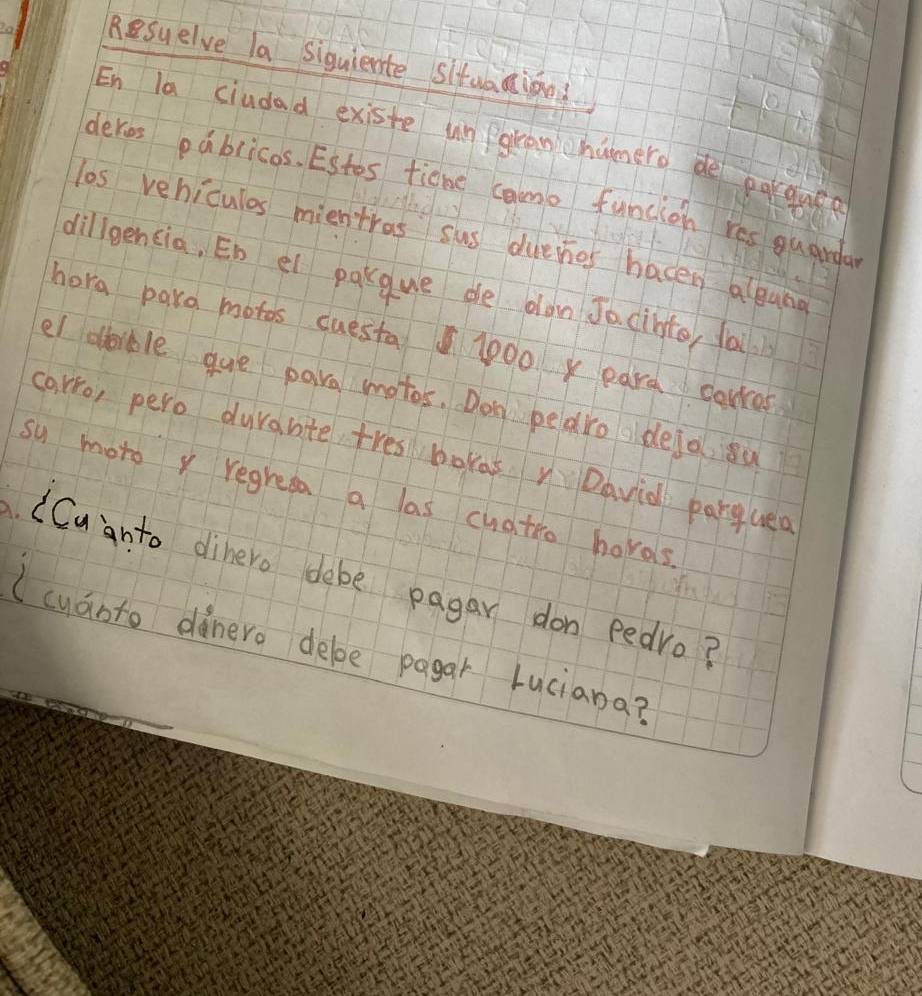 Resuelve la siguiente situación:
En la ciudad existe un gran número de parquea
deros pábricos. Estos tiene como función res guardar
los vehículos mientras sus dueños hacen alguna
diligencia, En el parque de don Jacinto, la
hora para motos cuesta $ 1000 y para carros
el doble que para motos. Don pedro deja su
carro, pero durante tres horas y David parquea
su moto y regresa a las cuatro horas.
a. ¿Cuánto dinero debe pagar don pedro?
¿cuánto dinero debe pagar Luciana?